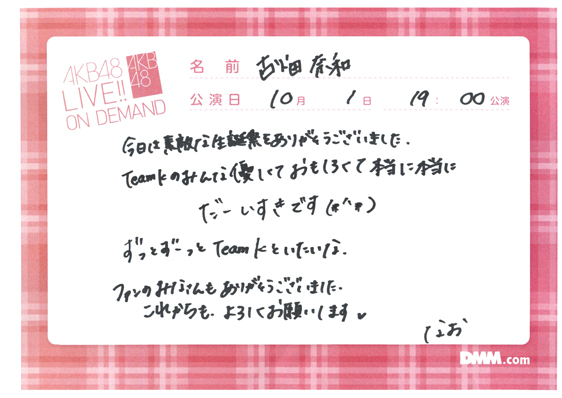 AKB48
LIVE!!
ON DEMAND
AKB
48
名前 古畑奈和
公演日 10月 1日 19:00公演
今日は素敵な生誕祭をありがとうございました.
TeamKのみんな優しくておもしろくて本当に本当に
だーいすきです(*^^*)
ずっとずーっとTeamKといたいな.
ファンのみなさんもありがとうございました.
これからも、よろしくお願いします♥
なお
DMM.com